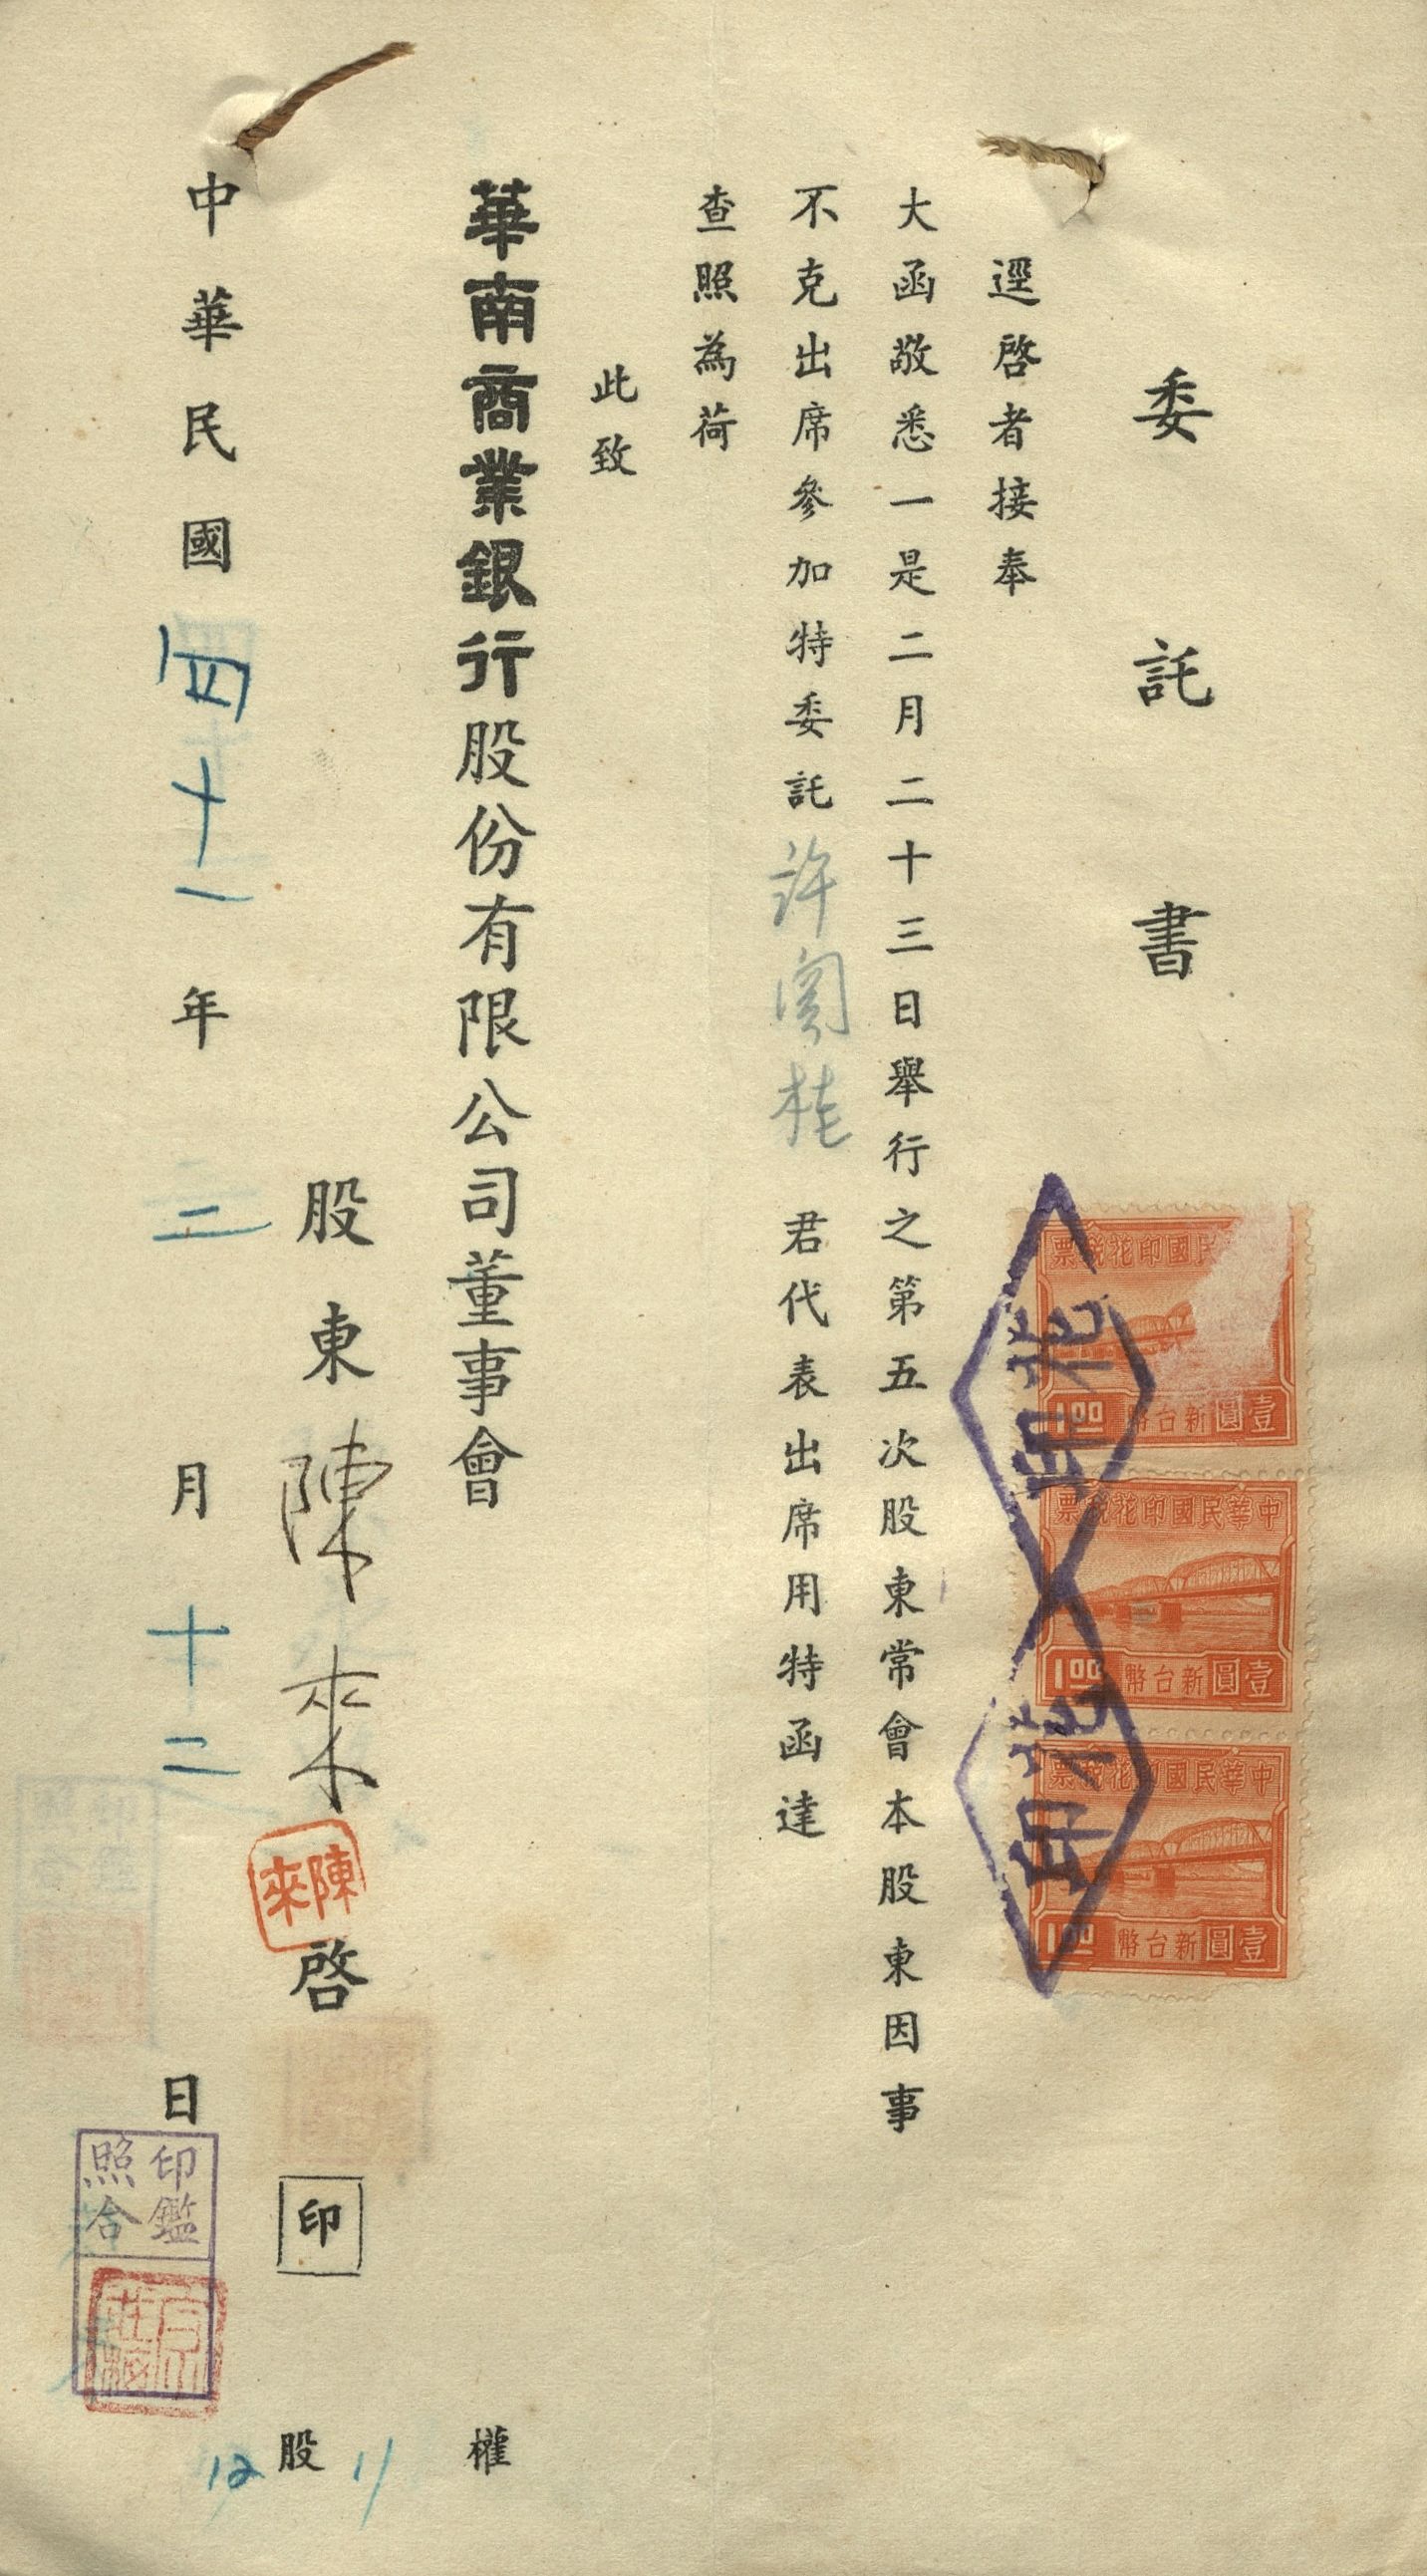 委託書
逕啓者接奉
大函敬悉一是二月二十三日舉行之第五次股東常會本股東因事
不克出席參加特委託許 桂君代表出席用特函達
查照為荷
此致
華南商業銀行股份有限公司董事會
股東陳來啓印
陳來
中華民國四十一年二月十二日
權
11
股
12
印鑑
照合
民國印花稅票
1.00
新台幣
壹圓
中華民國印花稅票
1.00
新台幣
壹圓
中華民國印花稅票
1.00
新台幣
壹圓
印花
印花